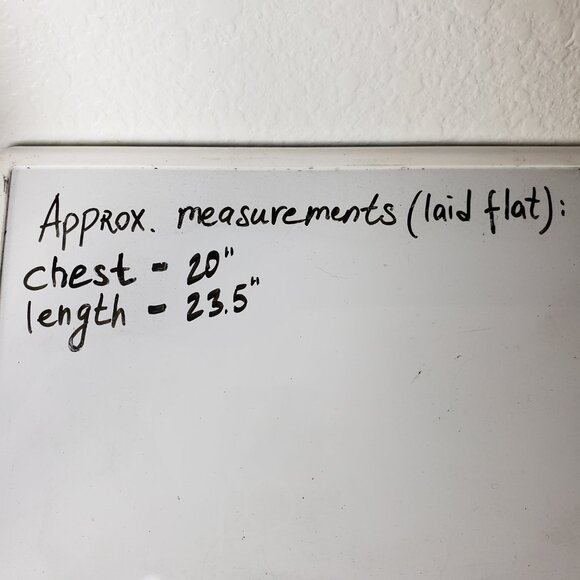 Approx. measurements (laid flat):
chest - 20"
length - 23.5"